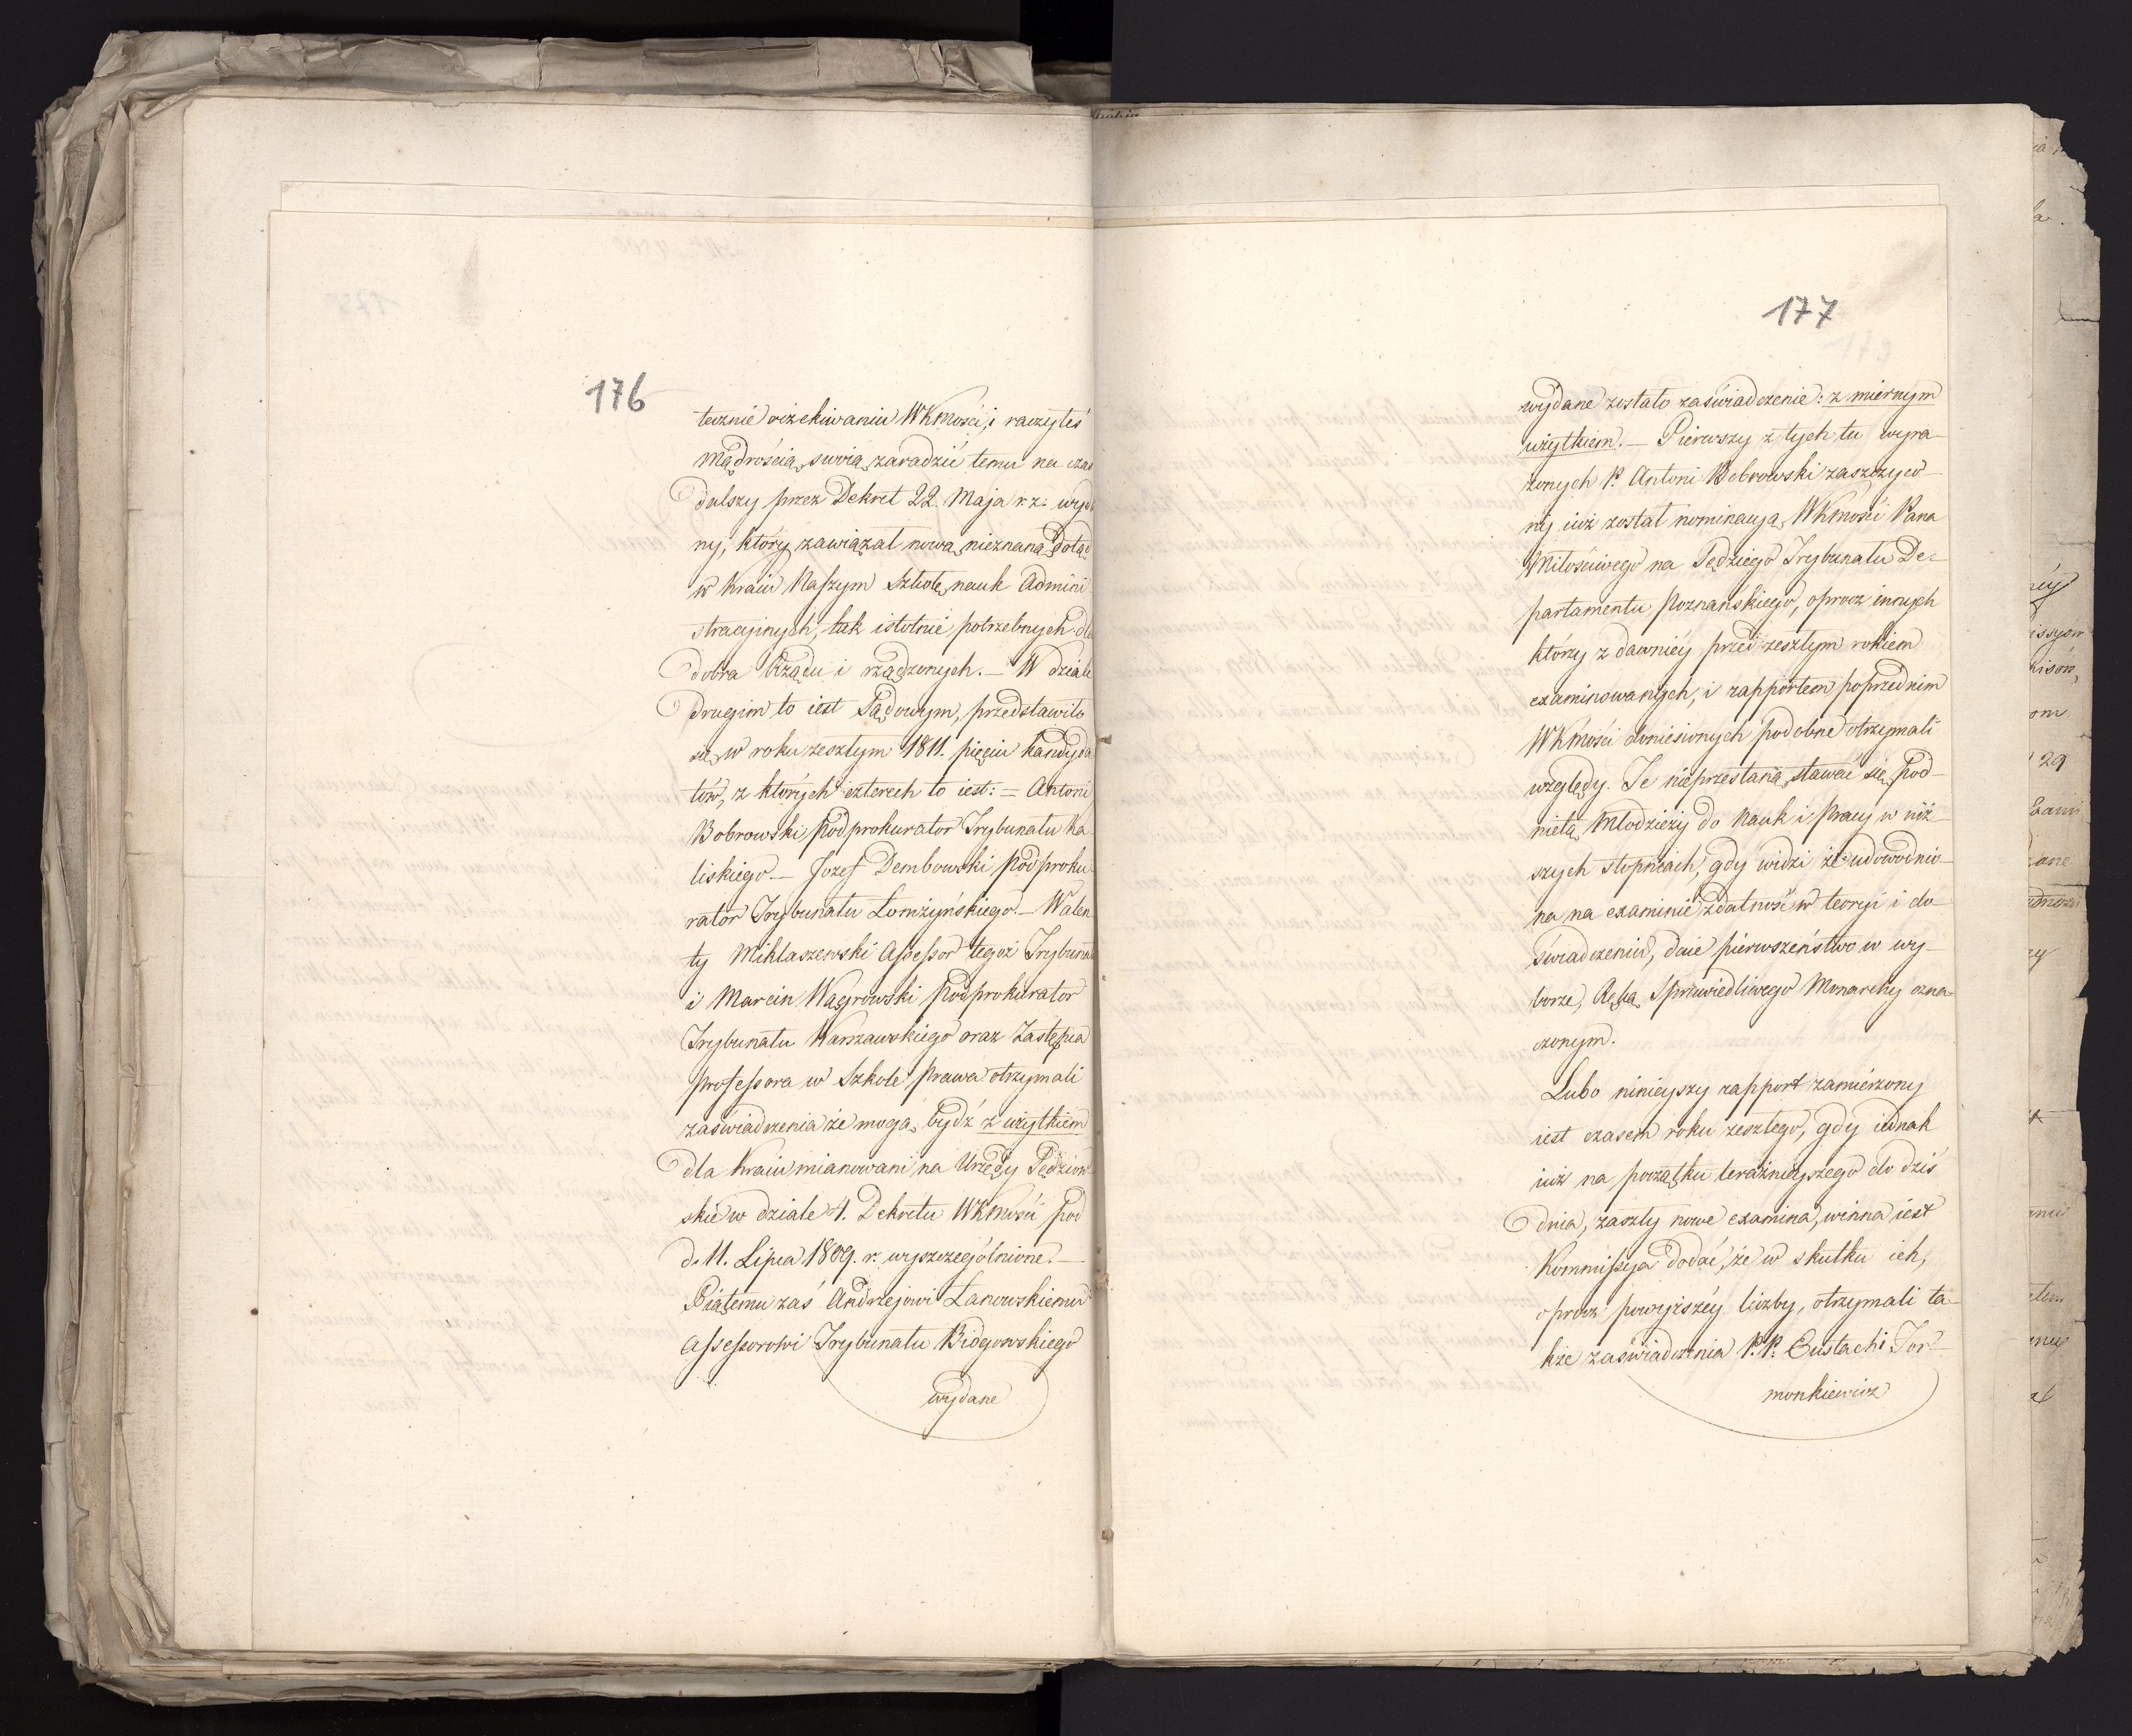 176
tecznie oczekiwaniu WKMości, i raczyłeś
Mądrością swoią zaradzić temu na czas
dalszy przez Dekret 22. Maja r. z. wyda
ny, który zawiązał nową nieznaną dotąd
w kraiu Naszym Szkołę nauk Admini
stracyjnych, tak istotnie potrzebnych dla
dobra Rządu i rządzonych. – W dziale
drugim to iest Sądowym, przedstawiło
się w roku zeszłym 1811. pięciu kandyda
tów, z których czterech to iest: = Antoni
Bobrowski Podprokurator Trybunału Ka
liskiego. – Jozef Dembowski Podproku
rator Trybunału Łomżyńskiego. – Walen
ty Miklaszewski Assessor tegoż Trybunału
i Marcin Wągrowski Podprokurator
Trybunału Warszawskiego oraz Zastępca
Professora w Szkole Prawa otrzymali
zaświadczenia że mogą bydź z użytkiem
dla Kraiu mianowani na Urzędy Sędziow
skie w dziale 4. Dekretu WKMości pod
d. 11. Lipca 1809. r. wyszczególnione. –
Piątemu zaś Andrzejowi Łanowskiemu
Assessorowi Trybunału Bidgowskiego
wydane
177
wydane zostało zaświadczenie: z miernym
użytkiem. – Pierwszy z tych tu wyra-
żonych P. Antoni Bobrowski zaszczyco-
ny iuż został nominacyą WKMości Pana
Miłościwego na Sędziego Trybunału De-
partamentu Poznańskiego, oprocz innych
którzy z dawniéy przed zeszłym rokiem
examinowanych, i rapportem poprzednim
WKMości doniesionych podobne otrzymali
względy. Te nieprzestaną stawać się pod-
nietą Młodzieży do Nauk i Pracy w niż-
szych stopniach, gdy widzi że udowodnio-
na na examinie zdatność w teoryi i do-
świadczeniu, daie pierwszeństwo w wy-
borze, Ręką Sprawiedliwego Monarchy ozna-
czonym.
Lubo ninieyszy rapport zamierzony
iest czasem roku zeszłego, gdy iednak
iuż na początku teraźnieyszego do dziś
dnia, zaszły nowe examina, winna iest
Kommissya dodać, że w skutku ich,
oprocz powyższéy liczby, otrzymali ta-
kże zaświadczenia P.P. Eustachi Tor-
monkiewicz